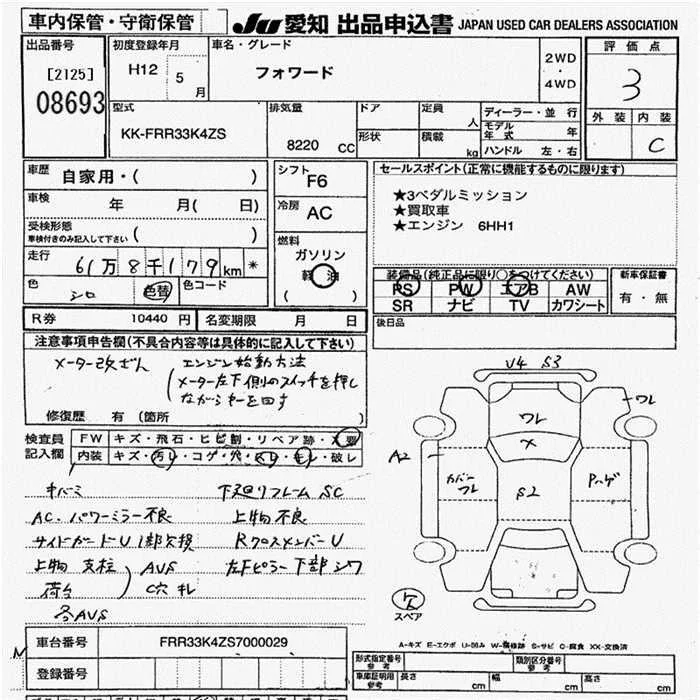 車内保管・守衛保管
JU 愛知 出品申込書 JAPAN USED CAR DEALERS ASSOCIATION
出品番号 初度登録年月 車名・グレード 評価点
[2125] H12 5月 フォワード 2WD・4WD 3
08693
型式 排気量 ドア 定員 人 ディーラー・並行 外装 内装
KK-FRR33K4ZS 8220 CC 形状 積載 kg モデル年式 年 C
ハンドル 左・右
車歴 自家用・( ) シフト F6 セールスポイント(正常に機能するものに限ります)
車検 年 月( 日) 冷房 AC ★3ペダルミッション
★買取車
受検形態 車検付きのみ記入して下さい ( ) ★エンジン 6HH1
走行 61万8千179km * 燃料 ガソリン 軽油 ( )
色 シロ 色替 色コード
装備品(純正品に限り○をつけてください) 新車保証書
PS PW エアB AW 有・無
SR ナビ TV カワシート
R券 10440 円 名変期限 月 日 後日品
注意事項申告欄(不具合内容等は具体的に記入して下さい)
メーター改ざん エンジン始動方法
メーター左下側のスイッチを押し
ながらキーを回す
修復歴 有 (箇所 )
検査員記入欄 FW キズ・飛石・ヒビ割・リペア跡・
内装 キズ・汚レ・コゲ・穴・・・破レ
キバミ 下廻りフレーム SC
AC.パワーミラー不良 上物不良
サイドガードU 1部欠損 RクロスメンバーU
上物 支柱 AVS 左下ピラー下部シワ
荷台 C穴 札
各AVS
U4 S3
ワレ
ワレ
×
A2
カバーワレ
S2
Pハゲ
スペア
A-キズ E-エクボ U-凹み W-補修跡 S-サビ C-腐食 XX-交換済
車台番号 FRR33K4ZS7000029
登録番号
形式指定番号 参考 類別区分番号 参考
車庫証明用 参考 長さ cm 幅 cm 高さ cm